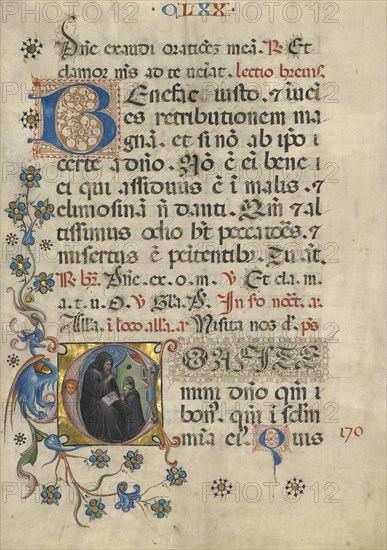 CLXX
Dñe exaudi orationẽ meã. R Et
clamor m̃s ad te ueniat. lectio breuis.
Benefac iusto. ⁊ ĩueni
es retributionem ma
gnã. et si nõ ab ipo
certe a dño. Nõ ẽ ei bene
ei qui assiduus ẽ ĩ malis. ⁊
elimosinã ñ danti. Qm̃ ⁊ al
tissimus odio h̃t peccatores. ⁊
misertus ẽ penitentibus. Tu aut̃.
Dñe. ex. o. m. V Et cla. m.
a. t. u. O. V Gla. P.
Alla. ĩ loco alla. a Uisita nos d. ps
Confite
mini dño qm̃
bon. qm̃ ĩ
mĩa ei. Quis
170